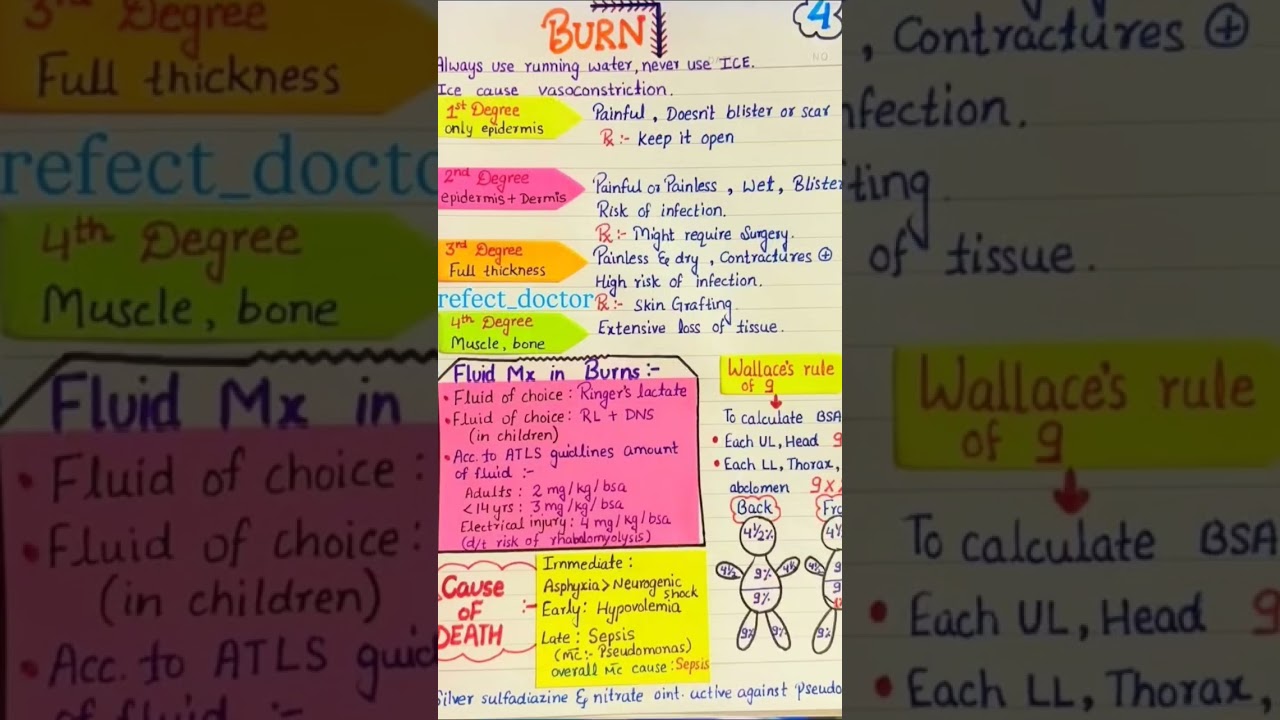 BURN
4
NO
Always use running water, never use ICE.
Ice cause vasoconstriction.
1st Degree
only epidermis
Painful, Doesn't blister or scar
Rx :- keep it open
2nd Degree
epidermis + Dermis
Painful or Painless, Wet, Blister
Risk of infection.
Rx :- Might require Surgery.
3rd Degree
Full thickness
Painless & dry, Contractures ⊕
High risk of infection.
Rx :- Skin Grafting.
refect_doctor
4th Degree
Muscle, bone
Extensive loss of tissue.
Fluid Mx in Burns :-
• Fluid of choice : Ringer's lactate
• Fluid of choice : RL + DNS
(in children)
• Acc. to ATLS guidlines amount
of fluid :-
Adults : 2 mg/kg/bsa
<14 yrs : 3 mg/kg/bsa
Electrical injury: 4 mg/kg/bsa
(d/t risk of rhabdomyolysis)
Wallace's rule
of 9
To calculate BSA
• Each UL, Head 9
• Each LL, Thorax,
abdomen 9x
Back
Fro
4½%
4½
9%
4½
9%
9%
9%
4½
4½
9
9
9%
Cause
of
DEATH
:-
Immediate :
Asphyxia > Neurogenic
shock
Early: Hypovolemia
Late : Sepsis
(mc :- Pseudomonas)
overall mc cause : Sepsis
Silver sulfadiazine & nitrate oint. active against Pseudo
3rd Degree
Full thickness
refect_docto
4th Degree
Muscle, bone
Fluid Mx in
• Fluid of choice :
• Fluid of choice :
(in children)
• Acc. to ATLS guid
of fluid :-
, Contractures ⊕
nfection.
ting
of tissue.
Wallace's rule
of 9
To calculate BSA
• Each UL, Head 9
• Each LL, Thorax,